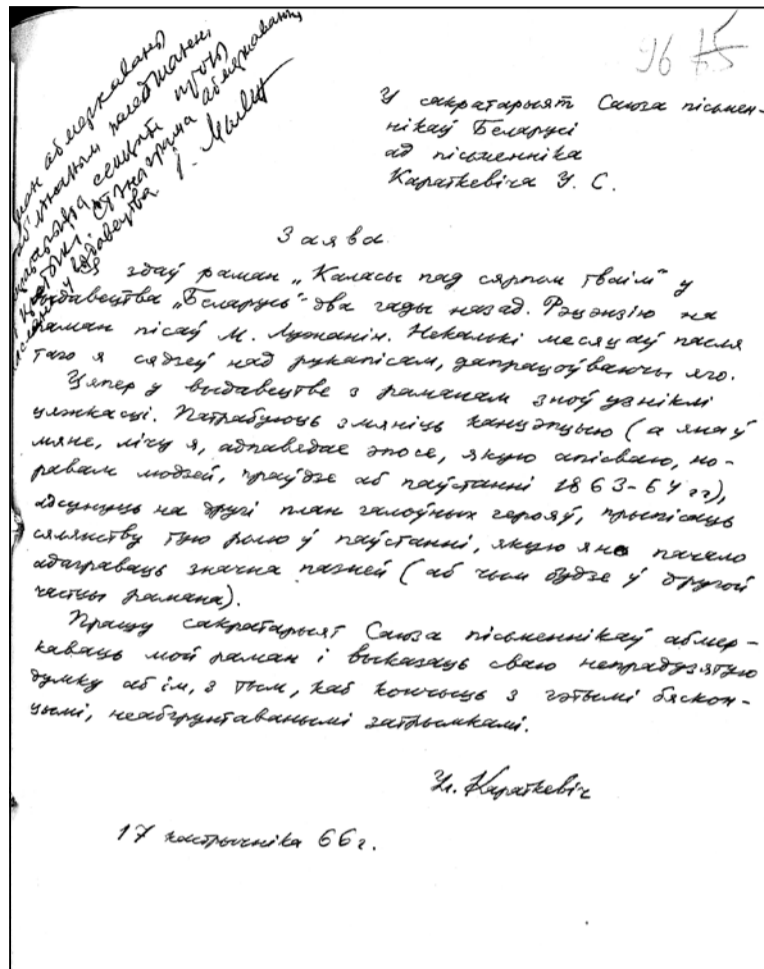 96
У сакратарыят Саюза пісьмен-
нікаў Беларусі
ад пісьменніка
Караткевіча У. С.
абмеркаваны
сакратарыята секцыі прозы
Стэнаграма абмеркавання
выдавецтва
Заява.
Я здаў раман „Каласы пад сярпом тваім" у
выдавецтва „Беларусь" два гады назад. Рэцэнзію на
раман пісаў М. Лужанін. Некалькі месяцаў пасля
таго я сядзеў над рукапісам, дапрацоўваючы яго.
Цяпер у выдавецтве з раманам зноў узніклі
цяжкасці. Патрабуюць змяніць канцэпцыю (а яна ў
мяне, лічу я, адпавядае эпосе, якую апісваю, но-
равам людзей, праўдзе аб паўстанні 1863-64 гг),
адсунуць на другі план галоўных герояў, прыпісаць
сялянству тую ролю ў паўстанні, якую яно пачало
адаграваць значна пазней (аб чым будзе ў другой
частцы рамана).
Прашу сакратарыят Саюза пісьменнікаў абмер-
каваць мой раман і выказаць сваю непрадузятую
думку аб ім, з тым, каб кончыць з гэтымі бяскон-
цымі, неабгрунтаванымі затрымкамі.
Ул. Караткевіч
17 кастрычніка 66 г.